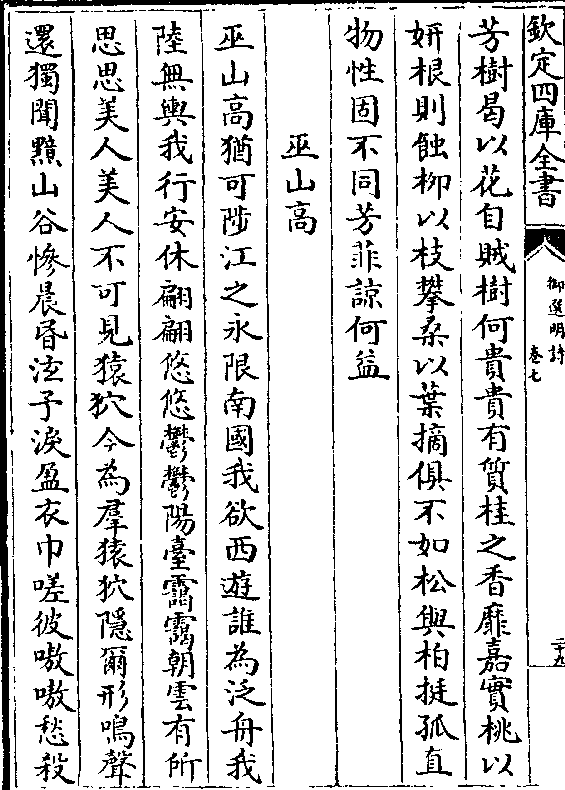 欽定四庫全書
御選明詩
卷七
二十九
芳樹曷以花自賊樹何貴貴有質桂之香靡嘉實桃以
妍根則蝕柳以枝攀桑以葉摘俱不如松與柏挺孤直
物性固不同芳菲諒何益
巫山高
巫山高猶可陟江之永限南國我欲西遊誰為泛舟我
陸無輿我行安休翩翩悠悠鬱鬱陽臺靄靄朝雲有所
思思美人美人不可見猿狖今為羣猿狖隱爾形鳴聲
還獨聞黮山谷慘晨昏泫予淚盈衣巾嗟彼嗷嗷愁殺